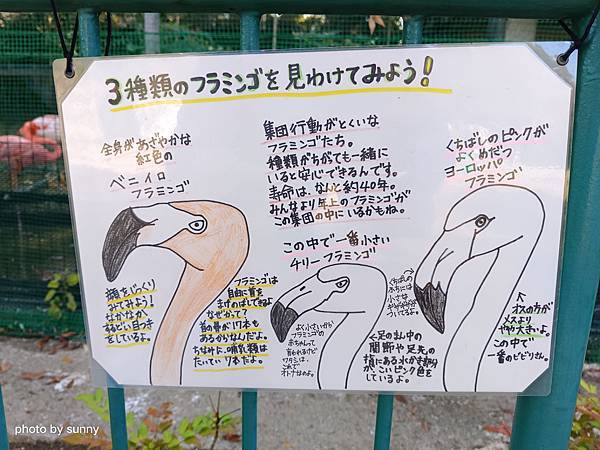 3種類のフラミンゴを見わけてみよう!
全身があざやかな
紅色の
ベニイロ
フラミンゴ
顔をじっくり
みてみよう!
なかなか
するどい目つき
をしているよ。
フラミンゴは
自由に首を
まげのばしできるよ
なぜかって?
首の骨が17本も
あるからなんだよ。
ちなみに、哺乳類は
たいてい7本だよ。
集団行動がとくいな
フラミンゴたち。
種類がちがでも一緒に
いると安心できるんです。
寿命は、なんと約40年。
みんなより年上のフラミンゴが
この集団の中にいるかもね。
この中で一番小さい
チリーフラミンゴ
よく小さいから
フラミンゴの
赤ちゃんって
言われるけど
ワタシは、
これで
オトナなのよ。
くちばしの
ふちには
小さな
←足のまん中の
関節や足先の
指にある水かき部分
がこいピンク色を
しているよ。
くちばしのピンクが
よくめだつ
ヨーロッパ
フラミンゴ
オスの方が
メスより
やや大きいよ。
この中で
一番のビビリさん。
photo by sunny